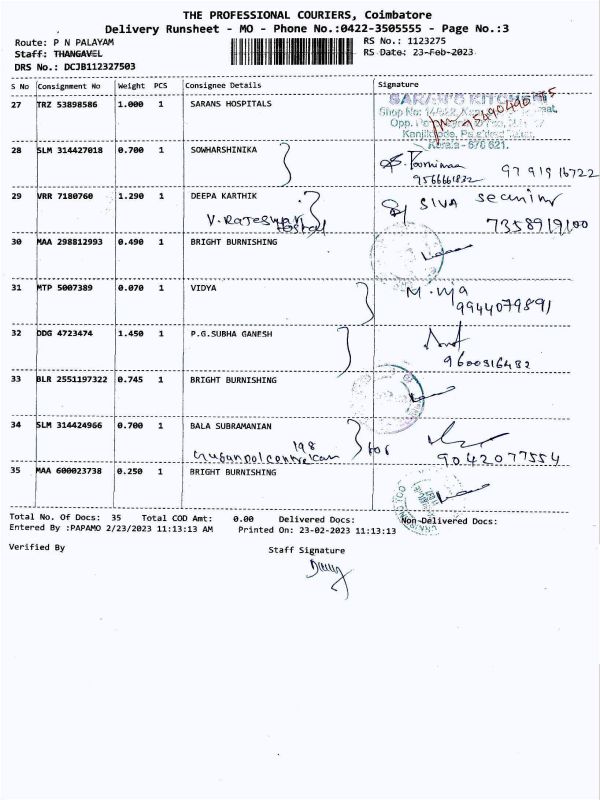 THE PROFESSIONAL COURIERS, Coimbatore
Delivery Runsheet - MO - Phone No.:0422-3505555 - Page No.:3
Route: P N PALAYAM
RS No.: 1123275
Staff: THANGAVEL
RS Date: 23-Feb-2023
DRS No.: DCJB112327503
S No Consignment No Weight PCS Consignee Details Signature
27 TRZ 53898586 1.000 1 SARANS HOSPITALS
SARAN'S KITCHEN
Shop No:
Opp.
Kanjikode,
Kerala - 678 621.
28 SLM 314427018 0.700 1 SOWHARSHINIKA
9566661832 97 91916722
29 VRR 7180760 1.290 1 DEEPA KARTHIK
V. Rajeswari Hostel
SIVA
7358919100
30 MAA 298812993 0.490 1 BRIGHT BURNISHING
31 MTP 5007389 0.070 1 VIDYA
9944079891
32 DDG 4723474 1.450 1 P.G.SUBHA GANESH
9600316432
33 BLR 2551197322 0.745 1 BRIGHT BURNISHING
34 SLM 314424966 0.700 1 BALA SUBRAMANIAN
198
for
9042077554
35 MAA 600023738 0.250 1 BRIGHT BURNISHING
Total No. Of Docs: 35 Total COD Amt: 0.00 Delivered Docs: Non-Delivered Docs:
Entered By :PAPAMO 2/23/2023 11:13:13 AM Printed On: 23-02-2023 11:13:13
Verified By
Staff Signature